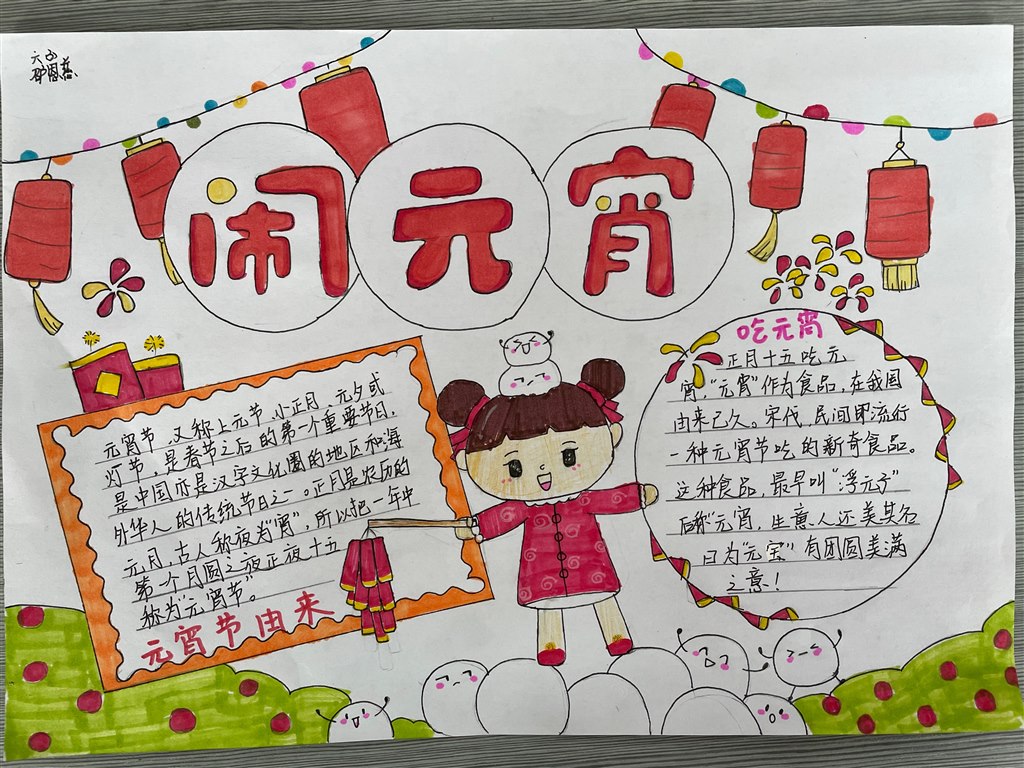 六
闹元宵
元宵节,又称上元节、小正月、元夕或
灯节,是春节之后的第一个重要节日,
是中国亦是汉字文化圈的地区和海
外华人的传统节日之一。正月是农历的
元月,古人称夜为"宵",所以把一年中
第一个月圆之夜正夜十五
称为"元宵节"。
元宵节由来
吃元宵
正月十五吃元
宵,"元宵"作为食品,在我国
由来已久。宋代,民间即流行
一种元宵节吃的新奇食品。
这种食品,最早叫"浮元子"
后称"元宵,生意人还美其名
曰为"元宝"有团圆美满
之意!